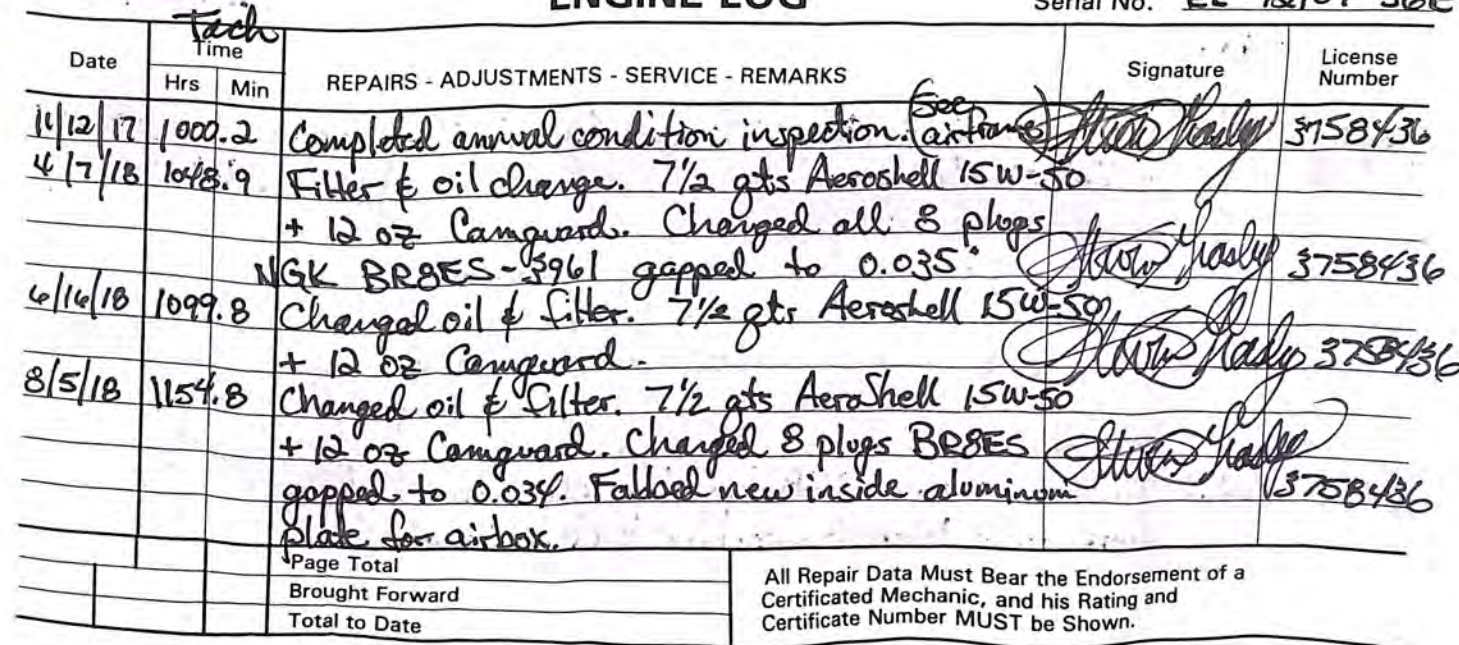 ENGINE LOG
Serial No.
Tach
Date Time Hrs Min REPAIRS - ADJUSTMENTS - SERVICE - REMARKS Signature License Number
11/12/17 1000.2 Completed annual condition inspection. (See airframe) 3758436
4/7/18 1048.9 Filter & oil change. 7 1/2 qts Aeroshell 15W-50
+ 12 oz Camguard. Changed all 8 plugs
NGK BR8ES-3961 gapped to 0.035" 3758436
6/16/18 1099.8 Changed oil & filter. 7 1/2 qts Aeroshell 15W-50
+ 12 oz Camguard. 3758436
8/5/18 1154.8 Changed oil & filter. 7 1/2 qts AeroShell 15W-50
+ 12 oz Camguard. Changed 8 plugs BR8ES
gapped to 0.034. Fabbed new inside aluminum 3758436
plate for airbox.
Page Total
Brought Forward
Total to Date
All Repair Data Must Bear the Endorsement of a
Certificated Mechanic, and his Rating and
Certificate Number MUST be Shown.